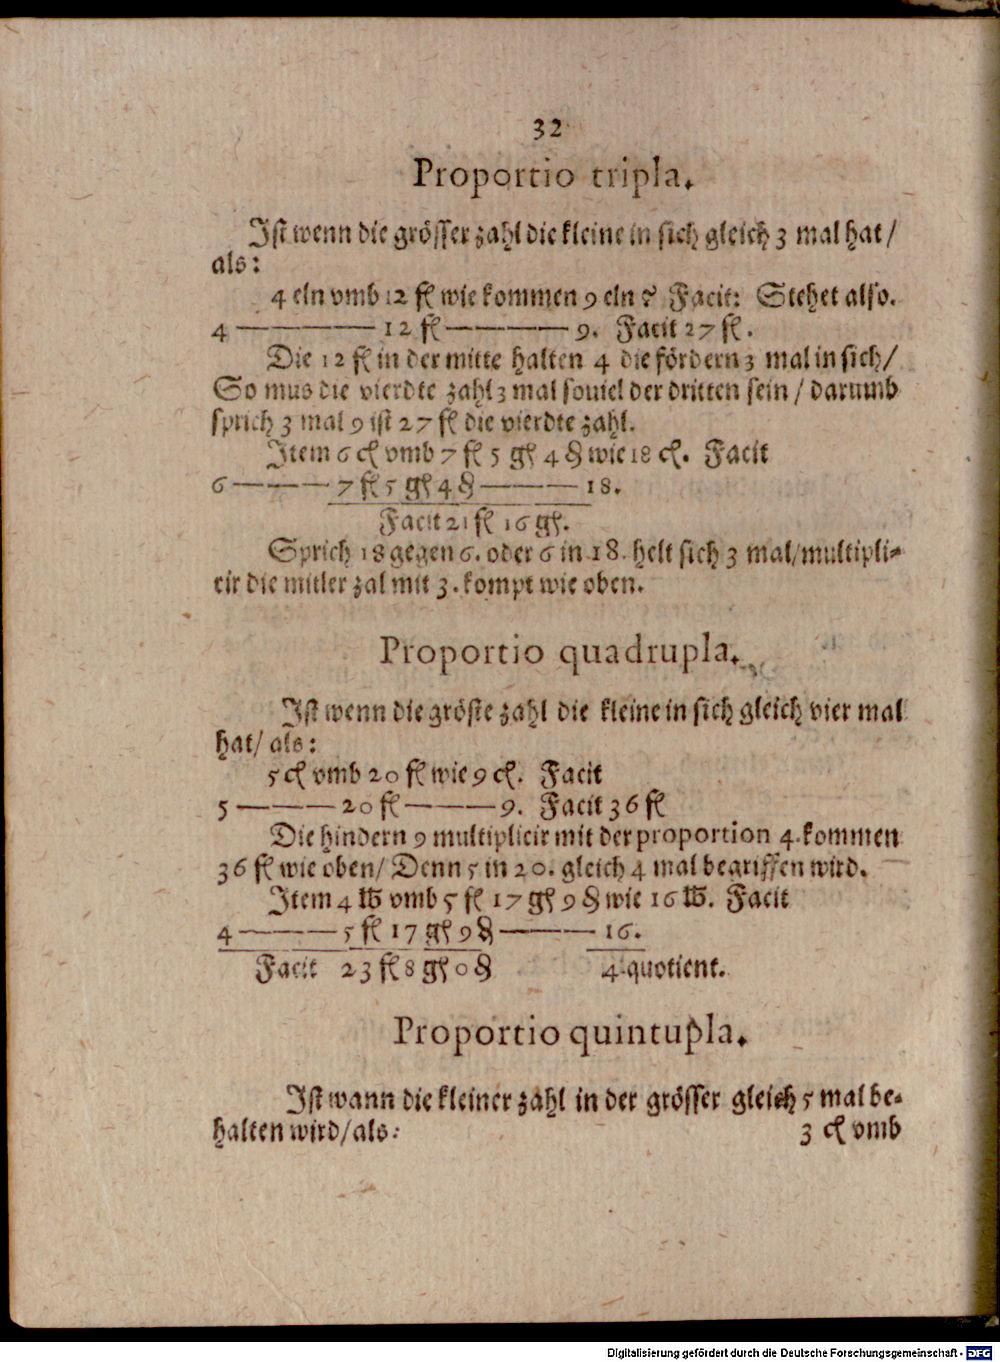 32
Proportio tripla.
Ist wenn die grösser zahl die kleine in sich gleich 3 mal hat/
als:
4 eln vmb 12 fl wie kommen 9 eln? Facit: Stehet also.
4 ——— 12 fl ——— 9. Facit 27 fl.
Die 12 fl in der mitte halten 4 die fördern 3 mal in sich/
So mus die vierdte zahl 3 mal souiel der dritten sein / darumb
sprich 3 mal 9 ist 27 fl die vierdte zahl.
Item 6 cl vmb 7 fl 5 gl 4 ₰ wie 18 cl. Facit
6 ——— 7 fl 5 gl 4 ₰ ——— 18.
Facit 21 fl 16 gl.
Sprich 18 gegen 6. oder 6 in 18. helt sich 3 mal/multipli-
cir die mitler zal mit 3. kompt wie oben.
Proportio quadrupla.
Ist wenn die gröste zahl die kleine in sich gleich vier mal
hat/ als:
5 cl vmb 20 fl wie 9 cl. Facit
5 ——— 20 fl ——— 9. Facit 36 fl
Die hindern 9 multiplicir mit der proportion 4. kommen
36 fl wie oben/ Denn 5 in 20. gleich 4 mal begriffen wird.
Item 4 ℔ vmb 5 fl 17 gl 9 ₰ wie 16 ℔. Facit
4 ——— 5 fl 17 gl 9 ₰ ——— 16.
Facit 23 fl 8 gl 0 ₰ 4 quotient.
Proportio quintupla.
Ist wann die kleiner zahl in der grösser gleich 5 mal be-
halten wird/als: 3 cl vmb
Digitalisierung gefördert durch die Deutsche Forschungsgemeinschaft - DFG